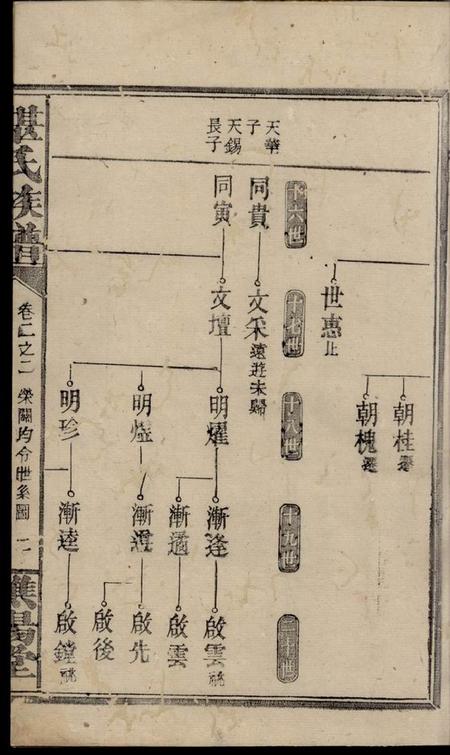 朝桂遷
朝槐遷
世惠止
十六世
十七世
十八世
十九世
二十世
天華子
同貴
文采遠遊未歸
天錫長子
同寅
文壇
明燿
漸逢
啟雲祧
啟雲
明煃
啟先
啟後
明珍
漸逵
啟鏜祧
氏族譜
卷二之二
榮關均令世系圖
譙陽堂